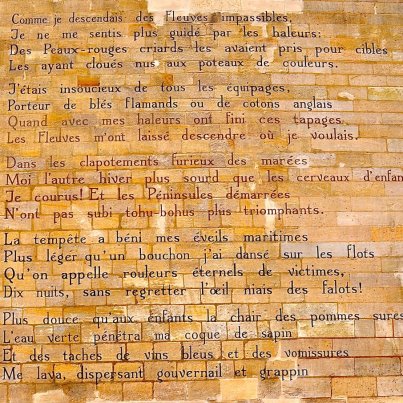 Comme je descendais des Fleuves impassibles,
Je ne me sentis plus guidé par les haleurs:
Des Peaux-rouges criards les avaient pris pour cibles
Les ayant cloués nus aux poteaux de couleurs.
J'étais insoucieux de tous les équipages,
Porteur de blés flamands ou de cotons anglais
Quand avec mes haleurs ont fini ces tapages
Les Fleuves m'ont laissé descendre où je voulais.
Dans les clapotements furieux des marées
Moi l'autre hiver plus sourd que les cerveaux d'enfan
Je courus! Et les Péninsules démarrées
N'ont pas subi tohu-bohus plus triomphants.
La tempête a béni mes éveils maritimes
Plus léger qu'un bouchon j'ai dansé sur les flots
Qu'on appelle rouleurs éternels de victimes,
Dix nuits, sans regretter l'œil niais des falots!
Plus douce qu'aux enfants la chair des pommes sures
L'eau verte pénétra ma coque de sapin
Et des taches de vins bleus et des vomissures
Me lava, dispersant gouvernail et grappin